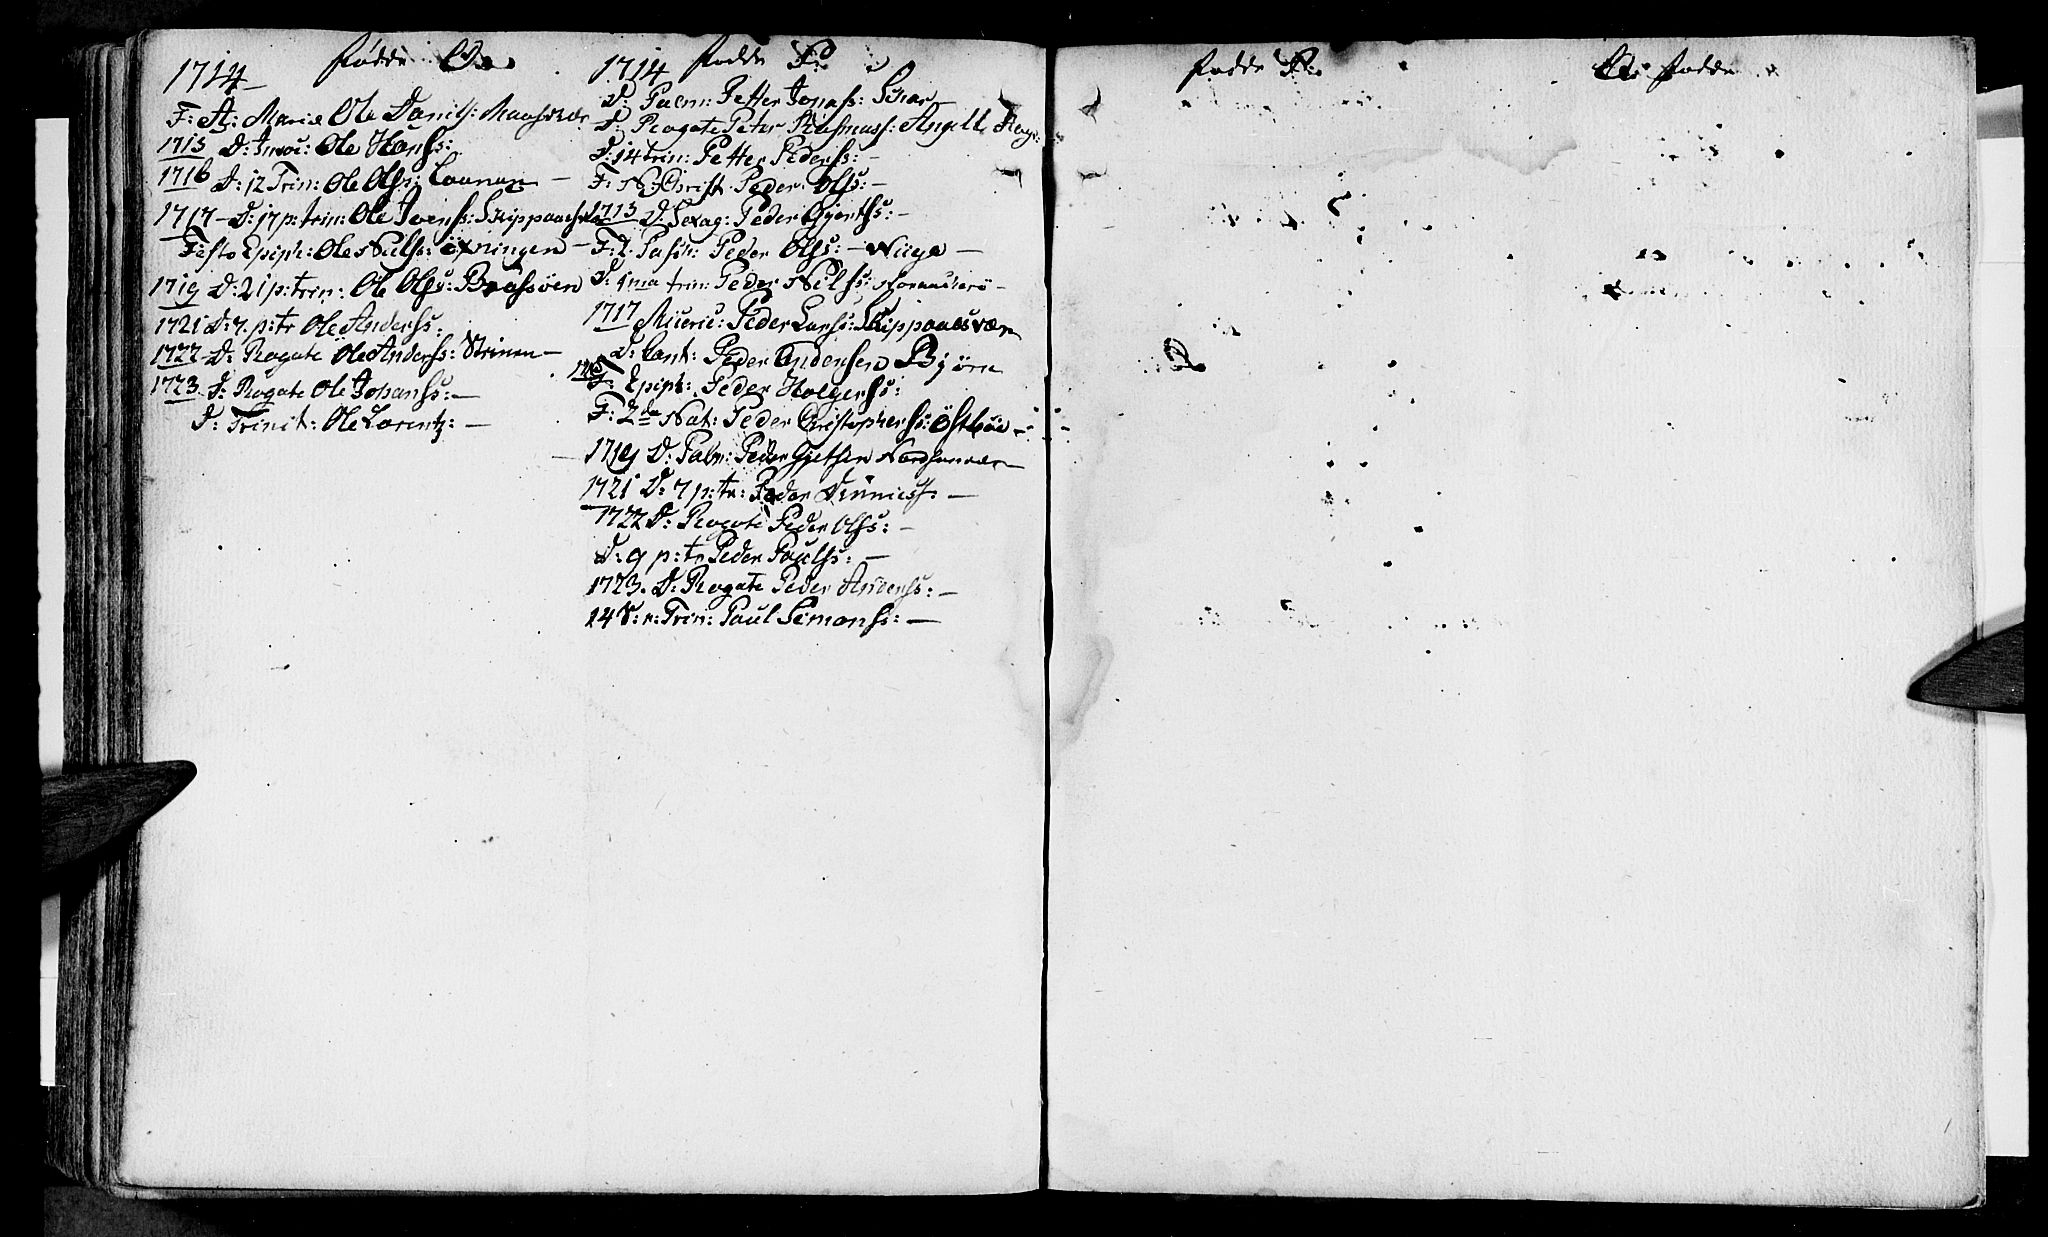 fødde O.
1714
F: A: Mariæ Ole Daniels: Maasvær
1715 D: Invoc: Ole Hanss:
1716 D: 12 Trin: Ole Olss: —
1717 – D: 17 p: trin: Ole Ivenss:
Festo Epiph: Ole Nielss: Øxningen –
1719 D: 21 p: trin: Ole Olss: Brasøen
1721 D: 7. p: tr Ole Anderss:
1722 – D: Rogate Ole Anderss: —
1723 D: Rogate Ole Johanss: —
D: Trinit: Ole Lorentz: —
1714 fødde P:
D: Palm: Petter Jonass:
D: Rogate Peter Rasmuss: Angell
D: 14 trin: Petter Pederss: –
F: N: Christ. Peder Olss: –
1715 D. Sexag: Peder Gjertss: –
F: 2 Pasch: Peder Olss: —
D: 9na trin: Peder Nilss:
1717 Miseric: Peder Larss: Skippaaesvær
D: Cant: Peder Andersen Bjørn
F: Epiph: Peder Holgerss:
F: 2da Nat: Peder Christopherss:
1719 D: Palm: Peder
1721 D: 7 p: tr: Peder —
1722 D: Rogate Peder Olss: –
D: 9 p: tr Peder Paulss: –
1723. D: Rogate Peder Anderss: –
14 S: p: Trin: Paul Simonss: —
fødde P:
Q: fødde